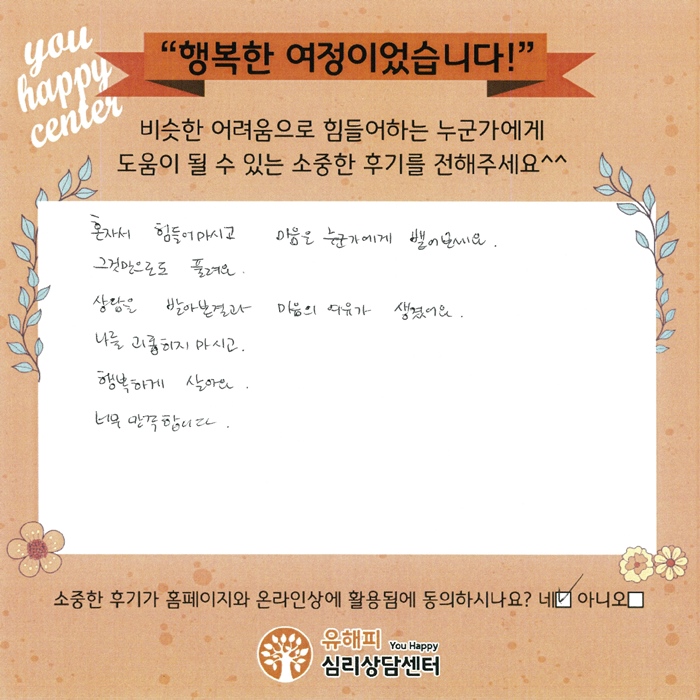 you
happy
center
“행복한 여정이었습니다!”
비슷한 어려움으로 힘들어하는 누군가에게
도움이 될 수 있는 소중한 후기를 전해주세요^^
혼자서 힘들어마시고 마음을 누군가에게 뱉어보세요.
그것만으로도 풀려요.
상담을 받아본결과 마음의 여유가 생겼어요.
나를 괴롭히지 마시고.
행복하게 살아요.
너무 만족합니다.
소중한 후기가 홈페이지와 온라인상에 활용됨에 동의하시나요? 네☑ 아니오☐
유해피 You Happy
심리상담센터